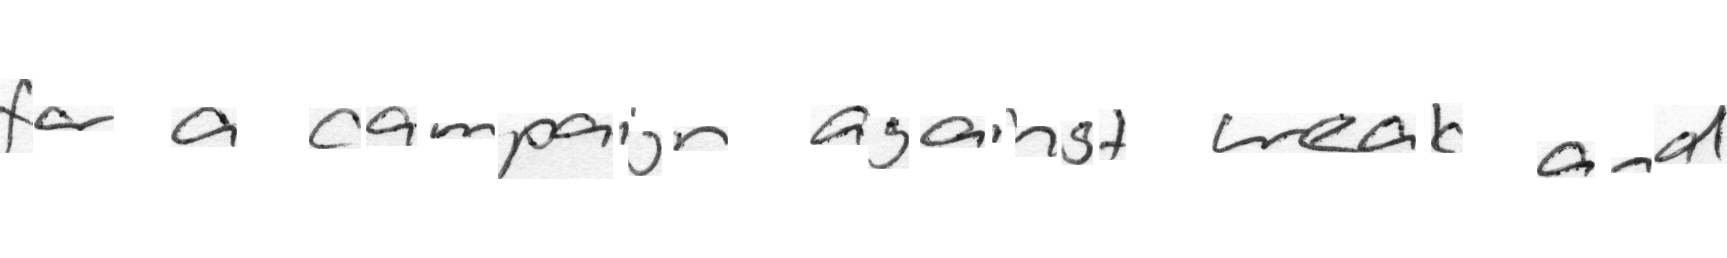 for a campaign against weak and